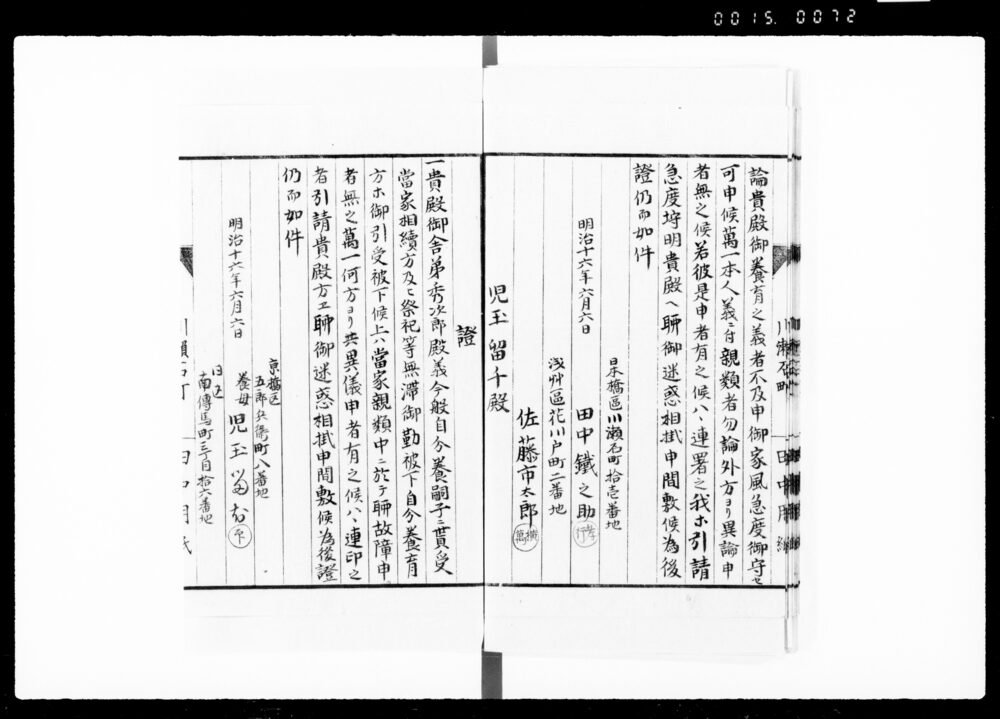 0015. 0072
論貴殿御養育之義者不及申御家風急度御守セ
可申候萬一本人義ニ付親類者勿論外方ヨリ異論申
者無之候若彼是申者有之候ハヽ連署之我ホ引請
急度埒明貴殿ヘ聊御迷惑相掛申間敷候為後
證仍而如件
日本橋區川瀬石町拾壱番地
明治十六年六月六日
田中鐵之助
浅艸區花川戸町二番地
佐藤市太郎
児玉留千殿
證
一貴殿御舎弟秀次郎殿義今般自分養嗣子ニ貰受
當家相續方及ヒ祭祀等無滞御勤被下自分養育
方ホ御引受被下候上ハ當家親類中ニ於テ聊故障申
者無之萬一何方ヨリ共異儀申者有之候ハヽ連印之
者引請貴殿方エ聊御迷惑相掛申間敷候為後證
仍而如件
京橋区
五郎兵衛町八番地
明治十六年六月六日
養母 児玉
南傳馬町三丁目拾六番地